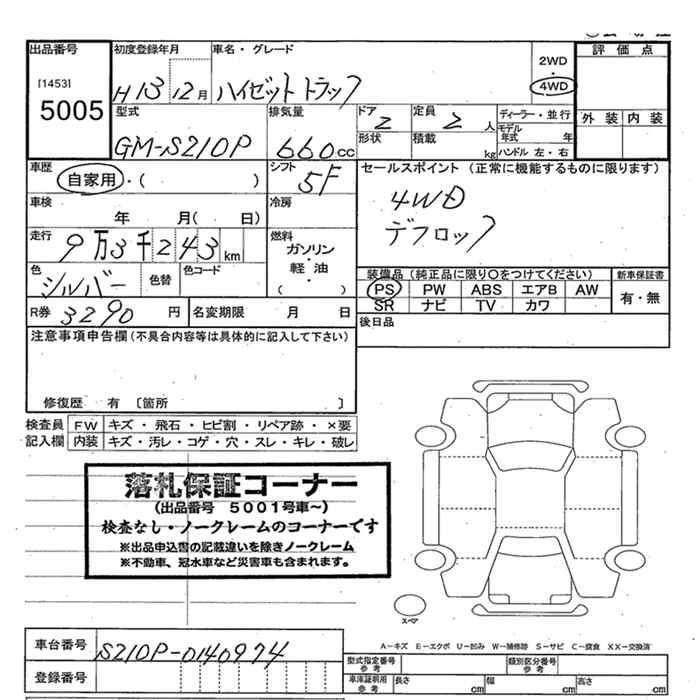 出品番号 初度登録年月 車名・グレード 評価点
[1453] 2WD
5005 H 13 12月 ハイゼット トラック ・ 4WD
型式 排気量 ドア 定員 ディーラー・並行 外装 内装
GM-S210P 660cc 2 2人 モデル年式 年
形状 積載 kg ハンドル 左・右
車歴 シフト セールスポイント (正常に機能するものに限ります)
自家用・( ) 5F 4WD
車検 冷房 デフロック
年 月( 日)
走行 燃料
9万3千243km ガソリン・軽油・( )
色 色替 色コード 装備品 (純正品に限り〇をつけてください) 新車保証書
シルバー PS PW ABS エアB AW 有・無
R券 3290円 名変期限 月 日 SR ナビ TV カワ
注意事項申告欄(不具合内容等は具体的に記入して下さい) 後日品
修復歴 有 〔箇所 〕
検査員 FW キズ・飛石・ヒビ割・リペア跡・×要
記入欄 内装 キズ・汚レ・コゲ・穴・スレ・キレ・破レ
落札保証コーナー
(出品番号 5001号車〜)
検査なし・ノークレームのコーナーです
※出品申込書の記載違いを除きノークレーム
※不動車、冠水車など災害車も含まれます。
スペア
車台番号 S210P-0140974 A-キズ E-エクボ U-凹み W-補修跡 S-サビ C-腐食 XX-交換済
登録番号 型式指定番号 参考 類別区分番号 参考
車庫証明用 参考 長さ cm 幅 cm 高さ cm